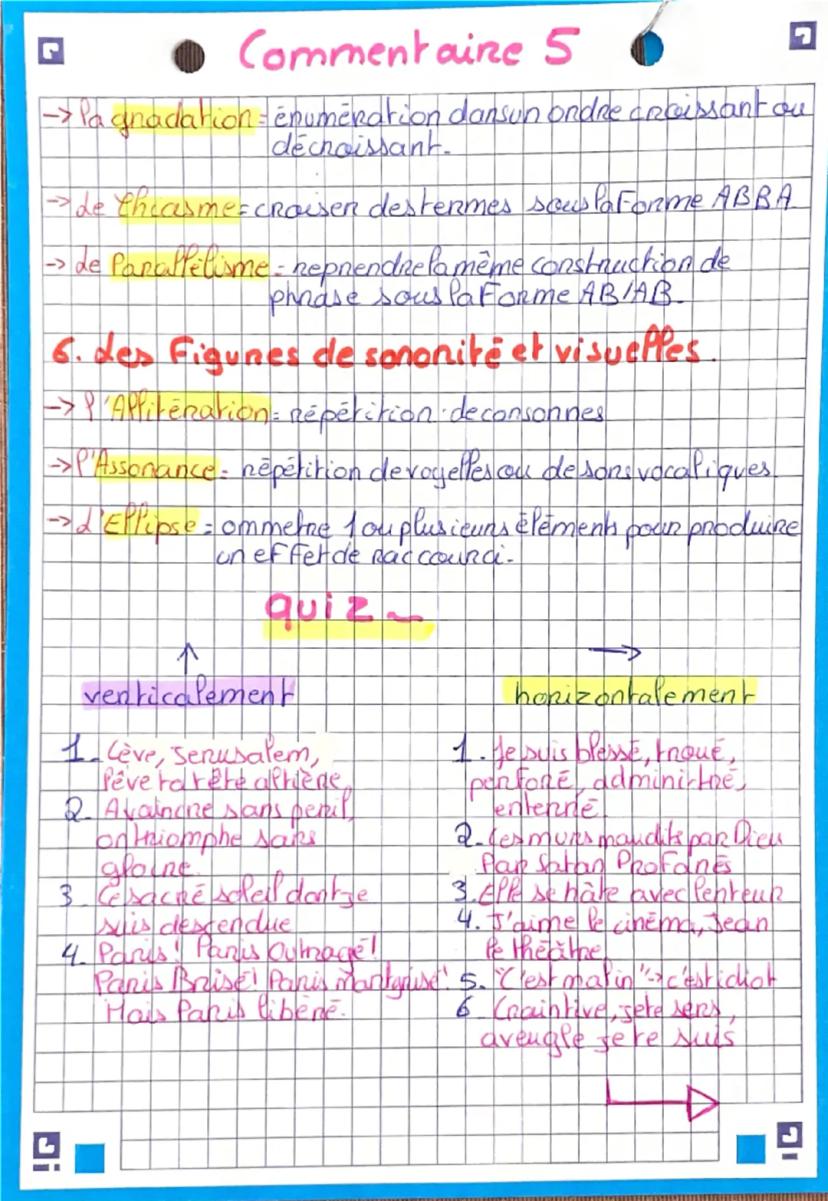 Commentaire 5
→ la gradation = énumération dans un ordre croissant ou
décroissant.
→ de Chiasme = croiser des termes sous la Forme ABBA
→ de Parallélisme = reprendre la même construction de
phrase sous la Forme AB/AB.
6. des Figures de sonorité et visuelles.
→ l'Allitération = répétition de consonnes
→ l'Assonance = répétition de voyelles ou de sons vocaliques
→ d'Ellipse = ommetre 1 ou plusieurs éléments pour produire
un effet de raccourci.
quiz
↑
verticalement
1. Lève, Jerusalem,
lève ta tête altière
2. A vaincre sans peril,
on triomphe sans
gloire
3. Ce sacré soleil dont je
suis descendue
4. Paris! Paris Outragé!
Paris Brisé! Paris martyrisé!
Mais Paris libéré.
→
horizontalement
1. Je suis blessé, troué,
perforé, administré,
enterré.
2. Ces murs maudits par Dieu
Par Satan Profanés
3. Elle se hâte avec lenteur
4. J'aime le cinéma, Jean
le théâtre
5. "C'est malin" → c'est idiot
6. Craintive, je te sers,
aveugle je te suis